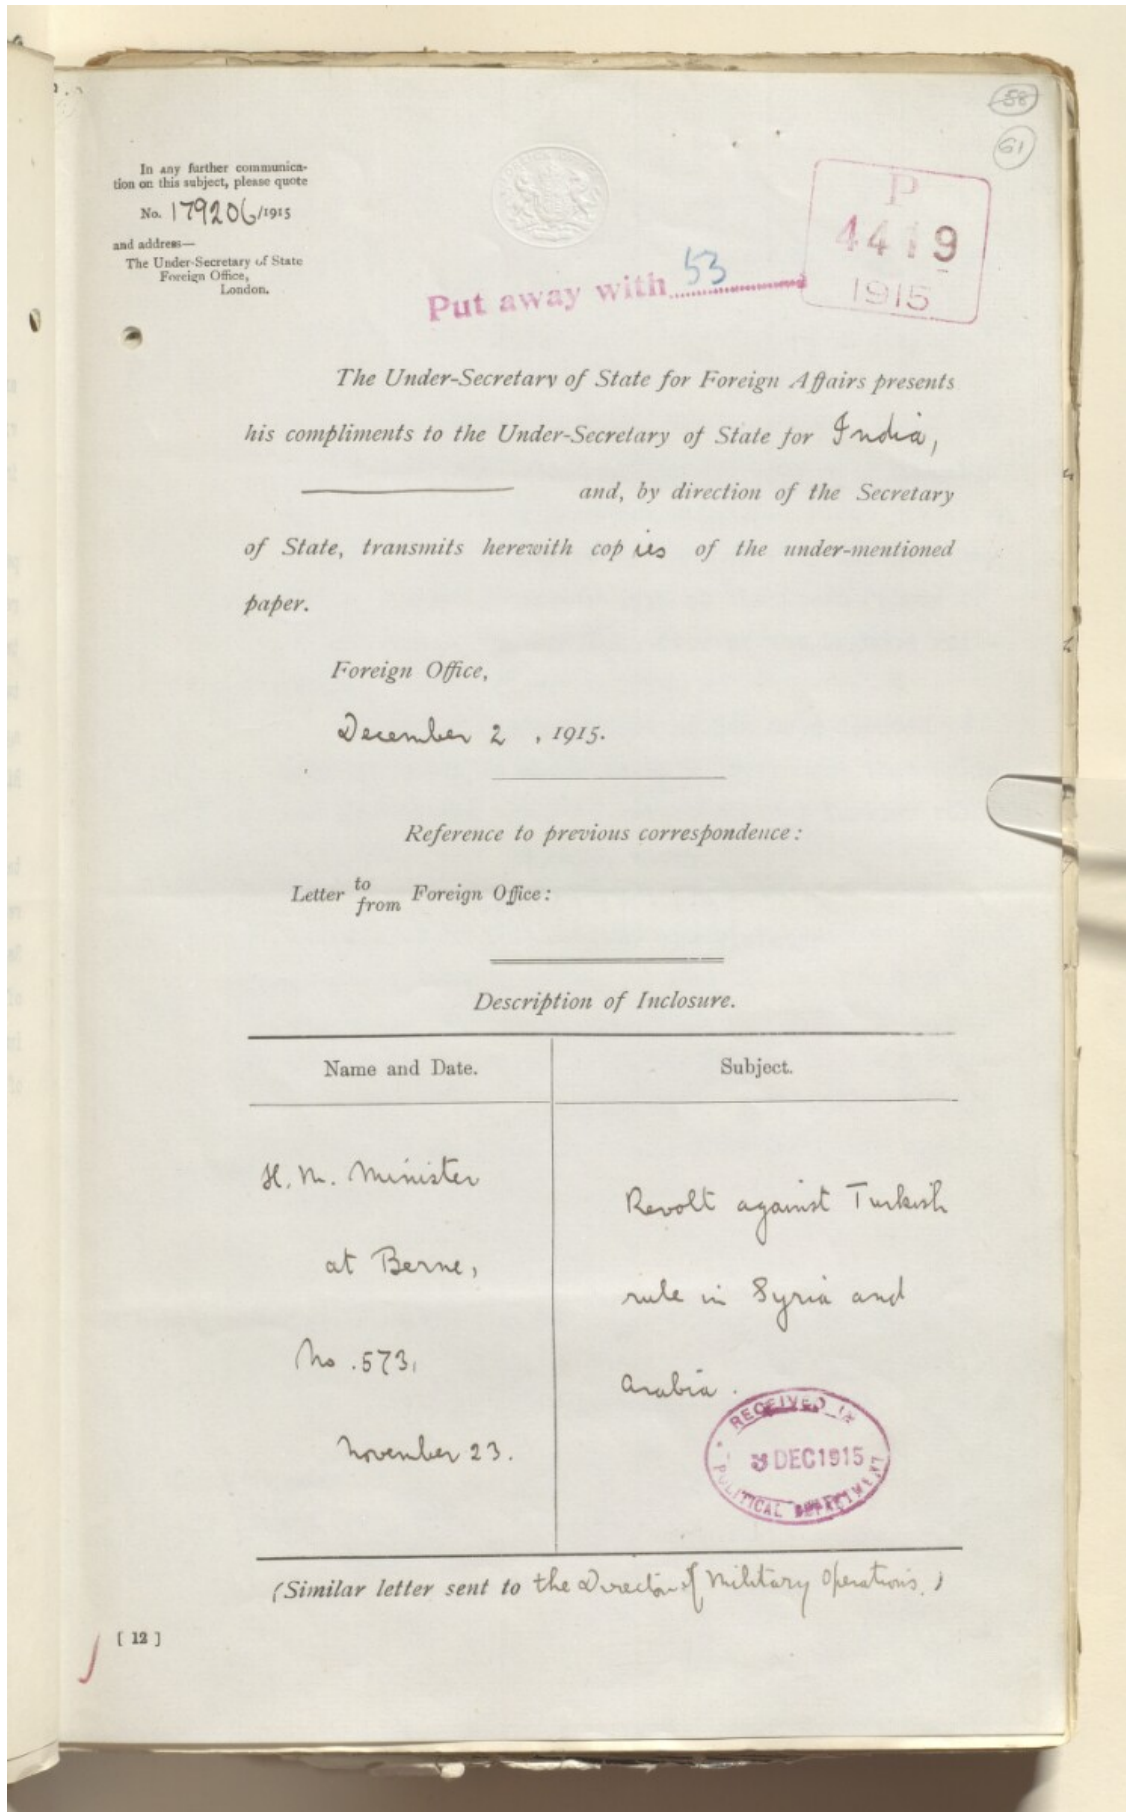 58
61
In any further communica-
tion on this subject, please quote
No. 179206/1915
and address—
The Under-Secretary of State
Foreign Office,
London.
P
4419
1915
Put away with 53
The Under-Secretary of State for Foreign Affairs presents
his compliments to the Under-Secretary of State for India,
and, by direction of the Secretary
of State, transmits herewith copies of the under-mentioned
paper.
Foreign Office,
December 2, 1915.
Reference to previous correspondence:
Letter to from Foreign Office:
Description of Inclosure.
Name and Date.
Subject.
H. M. Minister
at Berne,
No. 573,
November 23.
Revolt against Turkish
rule in Syria and
Arabia.
RECEIVED IN
3 DEC 1915
POLITICAL DEPARTMENT
(Similar letter sent to the Director of Military Operations.)
[ 12 ]